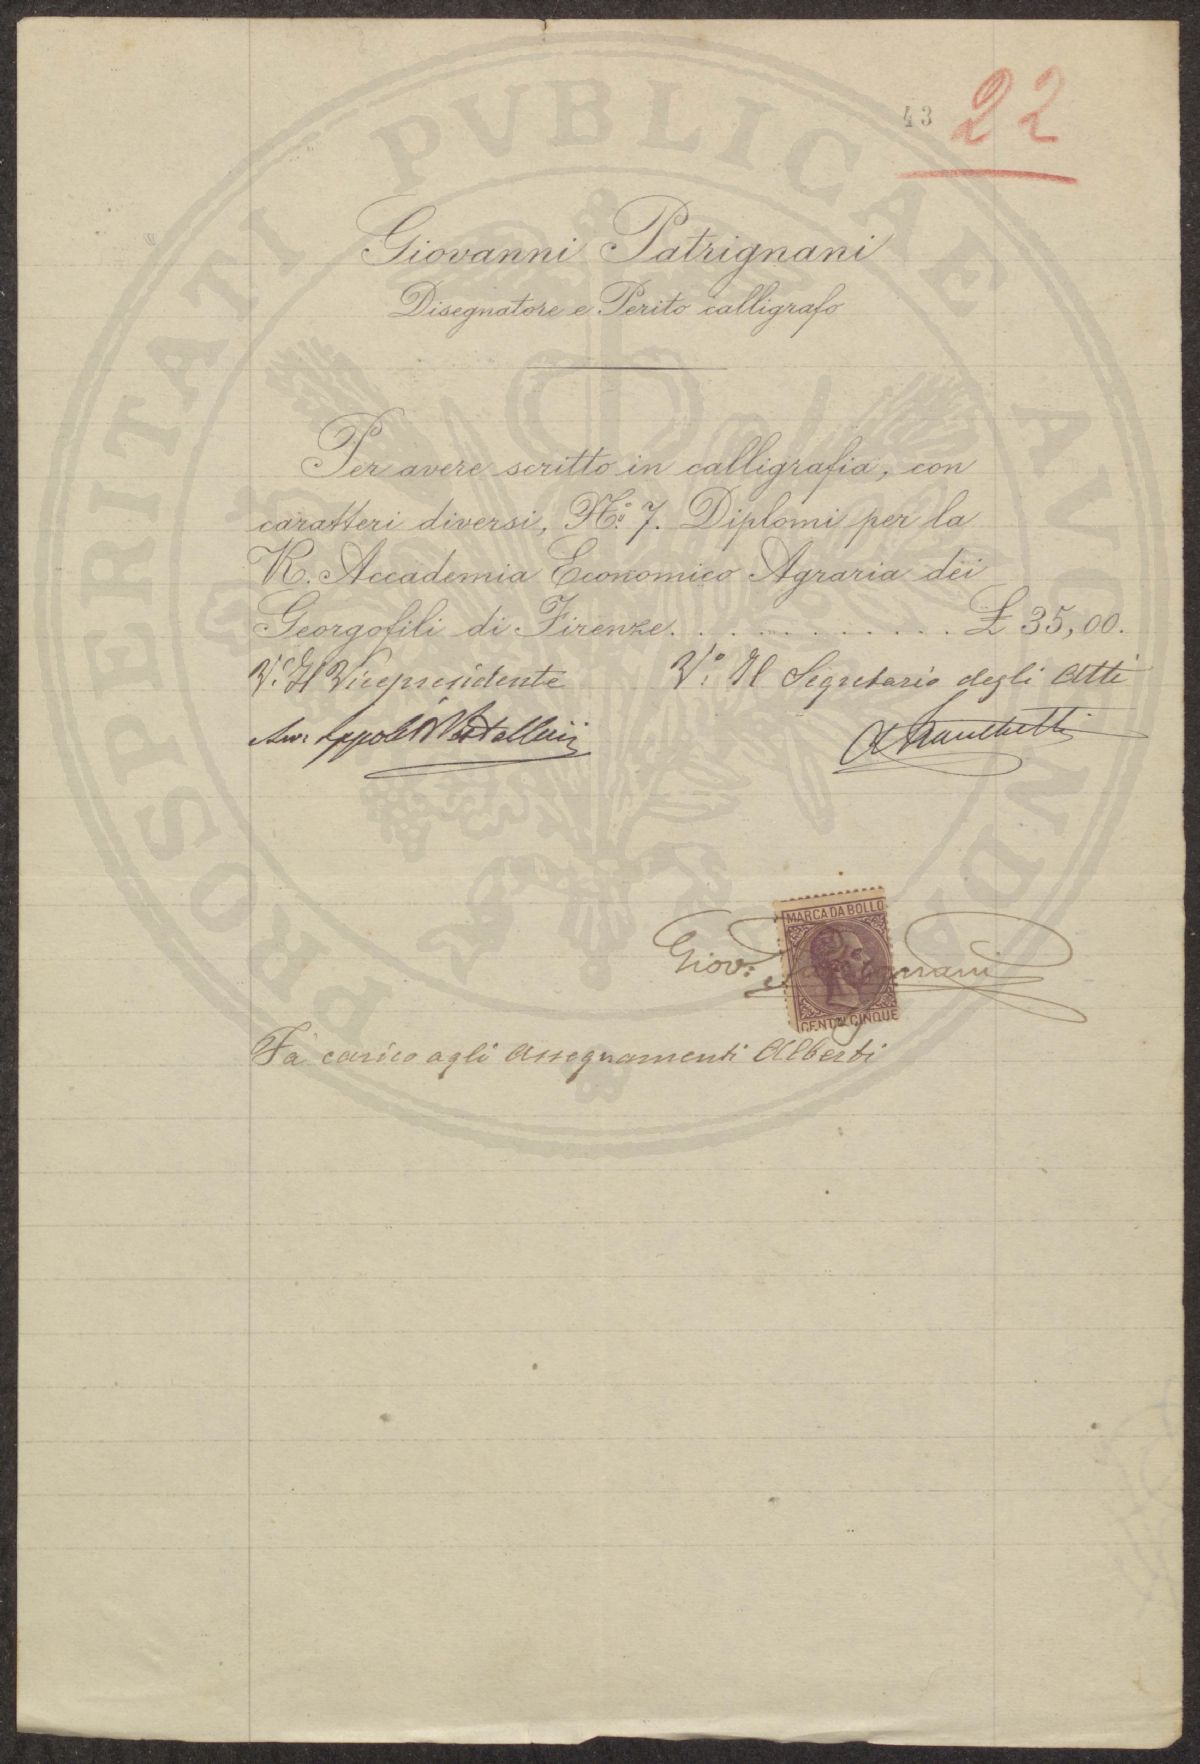 43 22
Giovanni Patrignani
Disegnatore e Perito calligrafo
Per avere scritto in calligrafia, con
caratteri diversi, No. 7. Diplomi per la
R. Accademia Economico Agraria dei
Georgofili di Firenze. . . . . . . . . . . . . £ 35,00.
Vo. Il Vicepresidente
Vo. Il Segretario degli Atti
MARCA DA BOLLO
Giov. Patrignani
CENT. CINQUE
Fa carico agli Assegnamenti Alberti
PROSPERITATI PVBLICAE AVGENDAE